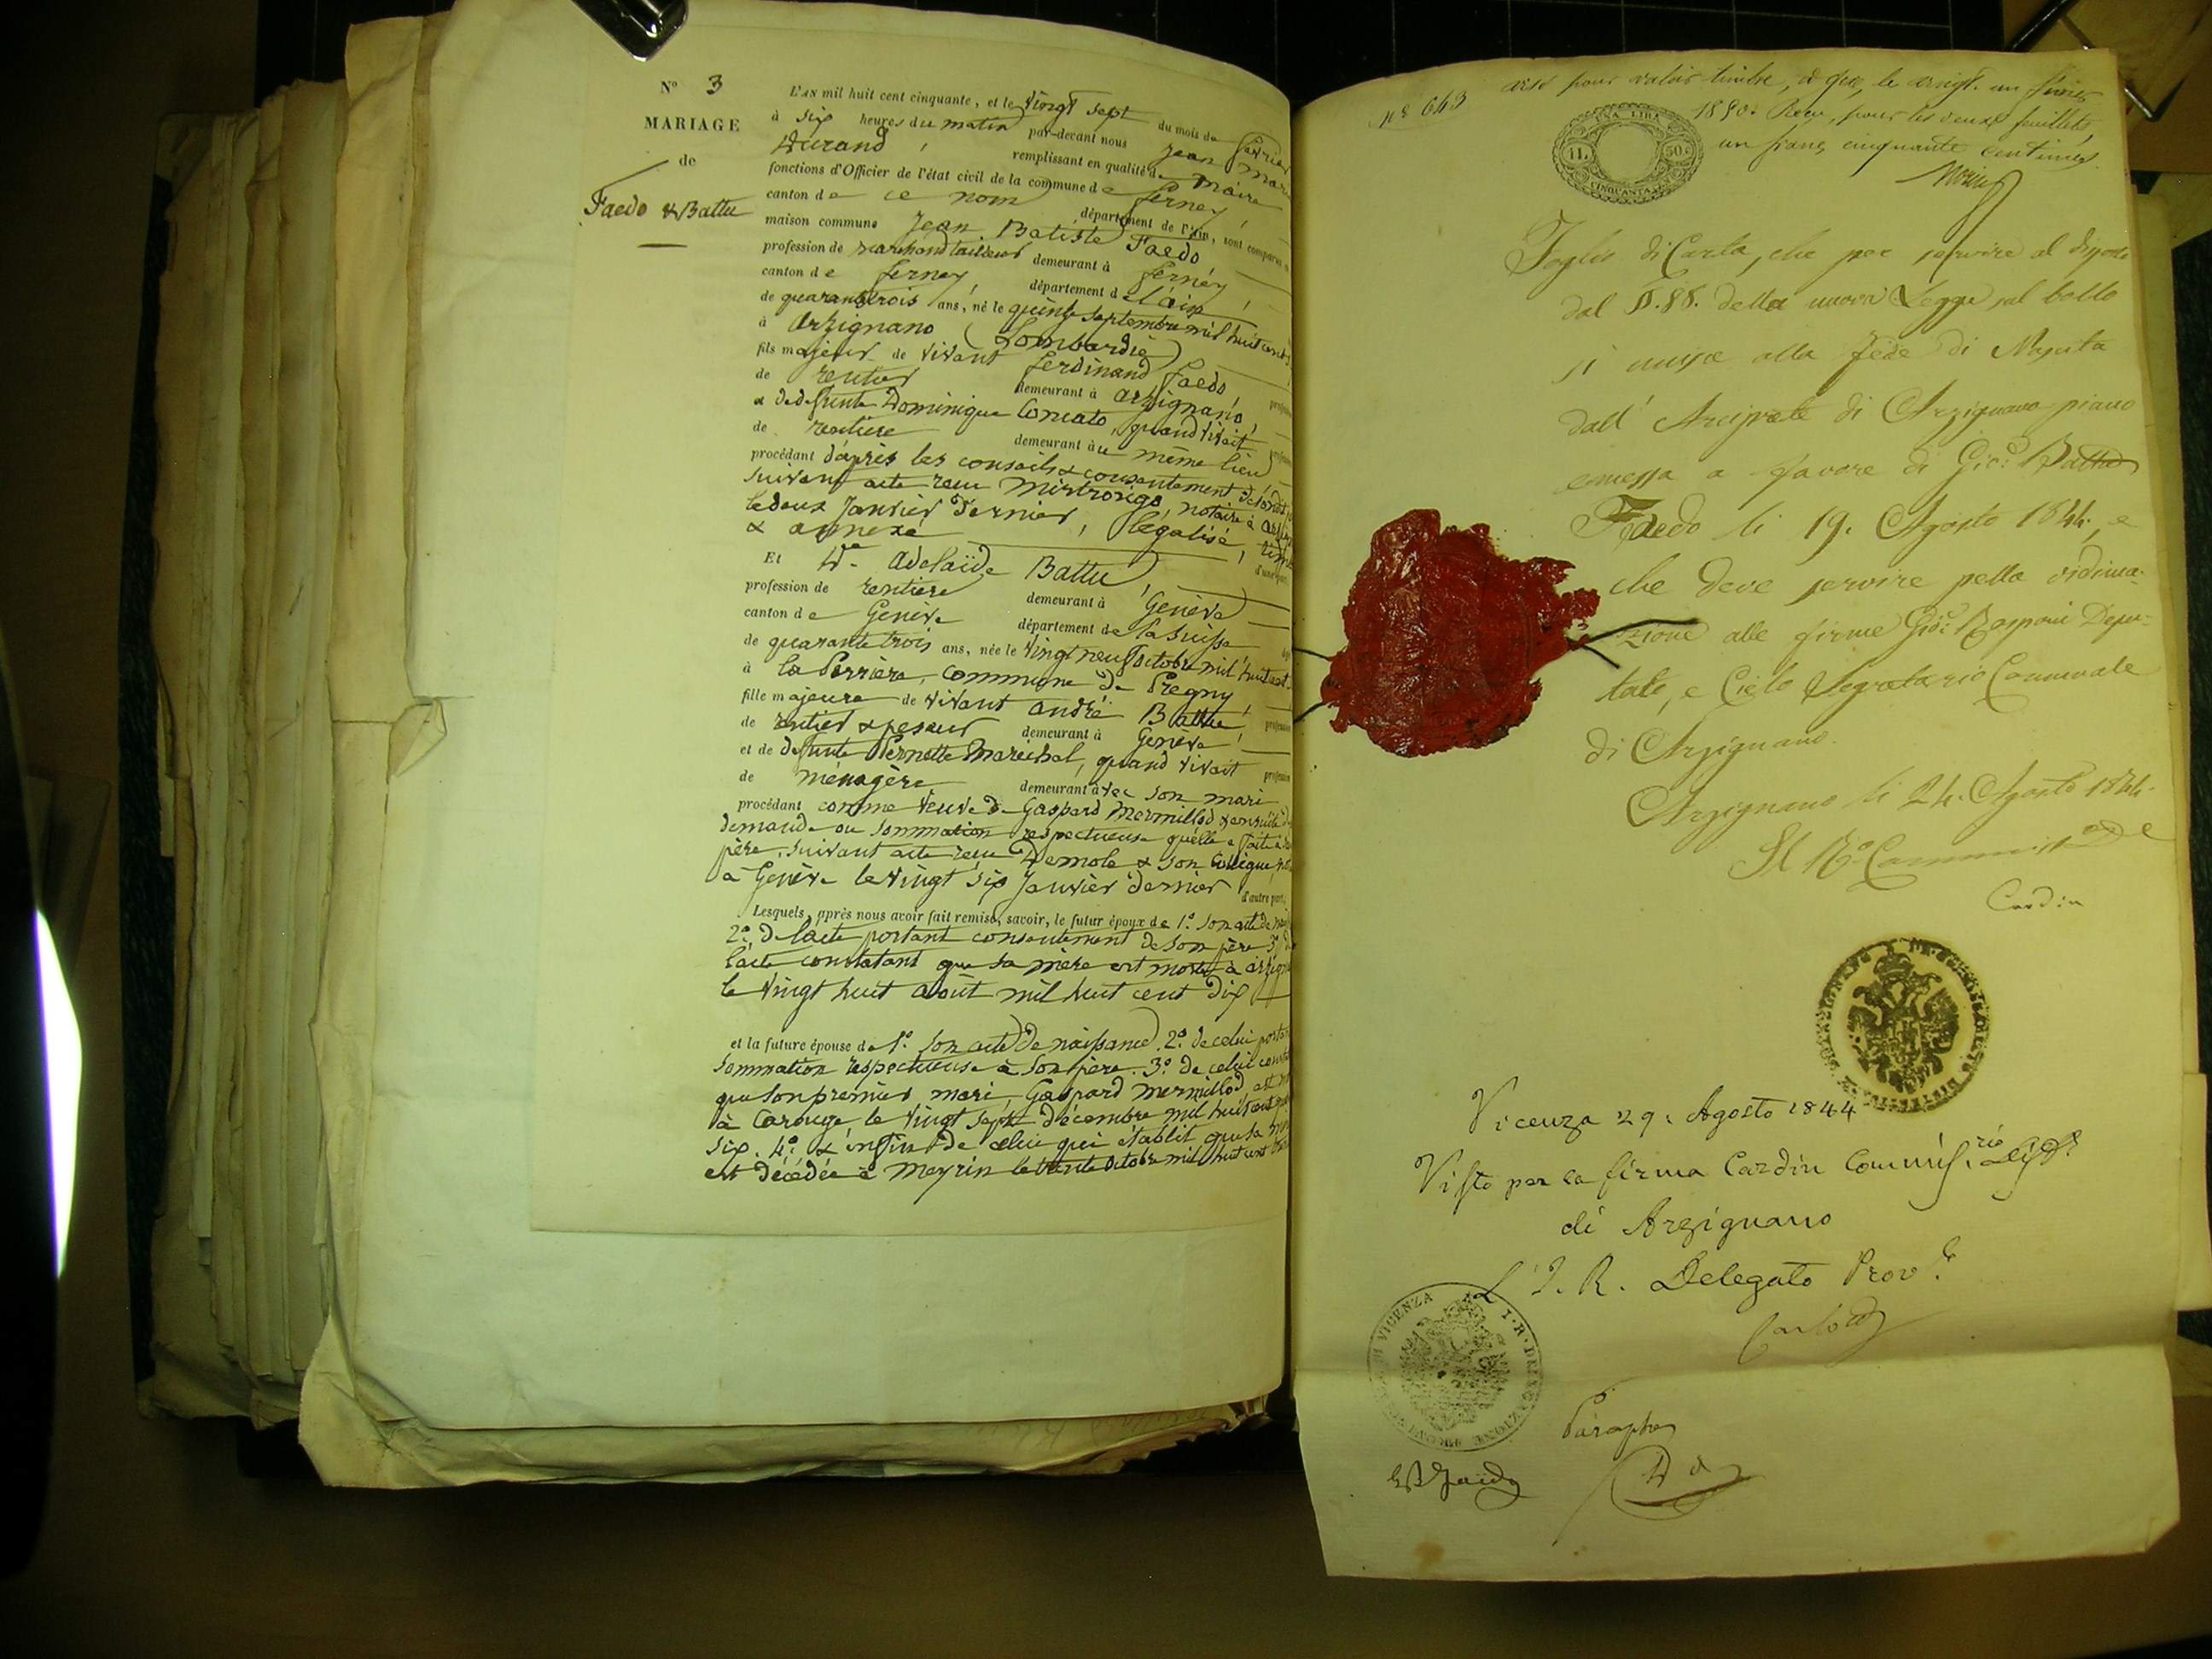 Nº 3
MARIAGE
de
Faedo & Battu
L'AN mil huit cent cinquante, et le vingt sept du mois de février
à six heures du matin par-devant nous Jean Marie
Durand, remplissant en qualité de Maire
fonctions d'Officier de l'état civil de la commune de ferney,
canton de ce nom département de l'Ain, sont comparus
maison commune Jean Batiste Faedo
profession de marchand tailleur demeurant à ferney
canton de ferney, département de l'ain,
de quarante trois ans, né le quinze septembre mil huit cent
à Arzignano (Lombardie)
fils majeur de vivant ferdinand faedo,
de rentier demeurant à arzignano,
& de defunte Dominique Concato, quand vivait
de rentière demeurant au même lieu
procédant d'après les conseils & consentement de son dit
suivant acte reçu Mistrorigo, notaire à
le deux Janvier dernier, légalisé,
& annexé
d'une part,
Et De Adelaïde Battu,
profession de rentière demeurant à Genève
canton de Genève département de la Suisse
de quarante trois ans, née le vingt neuf octobre mil huit cent
à la Perrière, commune de Pregny,
fille majeure de vivant andré Battu,
de rentier & peseur demeurant à Genève,
et de defunte Pernette Marechal, quand vivait
de ménagère demeurant avec son mari
procédant comme veuve de Gaspard Mermillod & ensuite de
demande ou sommation respectueuse qu'elle a faite à
père, suivant acte reçu Demole & son collègue,
à Genève le vingt six Janvier dernier
d'autre part,
Lesquels, après nous avoir fait remise, savoir, le futur époux de 1º son acte de
2º de l'acte portant consentement de son père 3º de
l'acte constatant que sa mère est morte à
le vingt huit août mil huit cent dix
et la future épouse de 1º son acte de naissance. 2º de celui
sommation respectueuse à son père. 3º de celui
que son premier mari, Gaspard mermillod, est
à Carouge, le vingt sept décembre mil huit cent
six. 4º & enfin de celui qui établit que sa
est décédée à Meyrin le trente octobre mil huit cent
nº 643
visé pour valoir timbre, à Gex, le vingt un février
1850. Reçu, pour les deux feuillets,
un franc cinquante centimes.
UNA LIRA
1 L. 50 C.
CINQUANTA
Foglio di Carta, che per servire al disposto
dal §. 88. della nuova Legge sul bollo
si unisce alla fede di Nascita
dall' Arciprete di Arzignano
emessa a favore di Gio: Batta
Faedo li 19. Agosto 1844, e
che deve servire pella vidima-
zione alle firme Gio: Bonponi Depu-
tato, e Cielo Segretario Comunale
di Arzignano.
Arzignano li 24. Agosto 1844.
Il Rº Commissº Dle
Cardin
Vicenza 29: Agosto 1844
Visto per la firma Cardin Commis.rio Distle
di Arzignano
L' I. R. Delegato Prov.le
I. R. DELEGAZIONE PROVINCIALE DI VICENZA
Paraphe